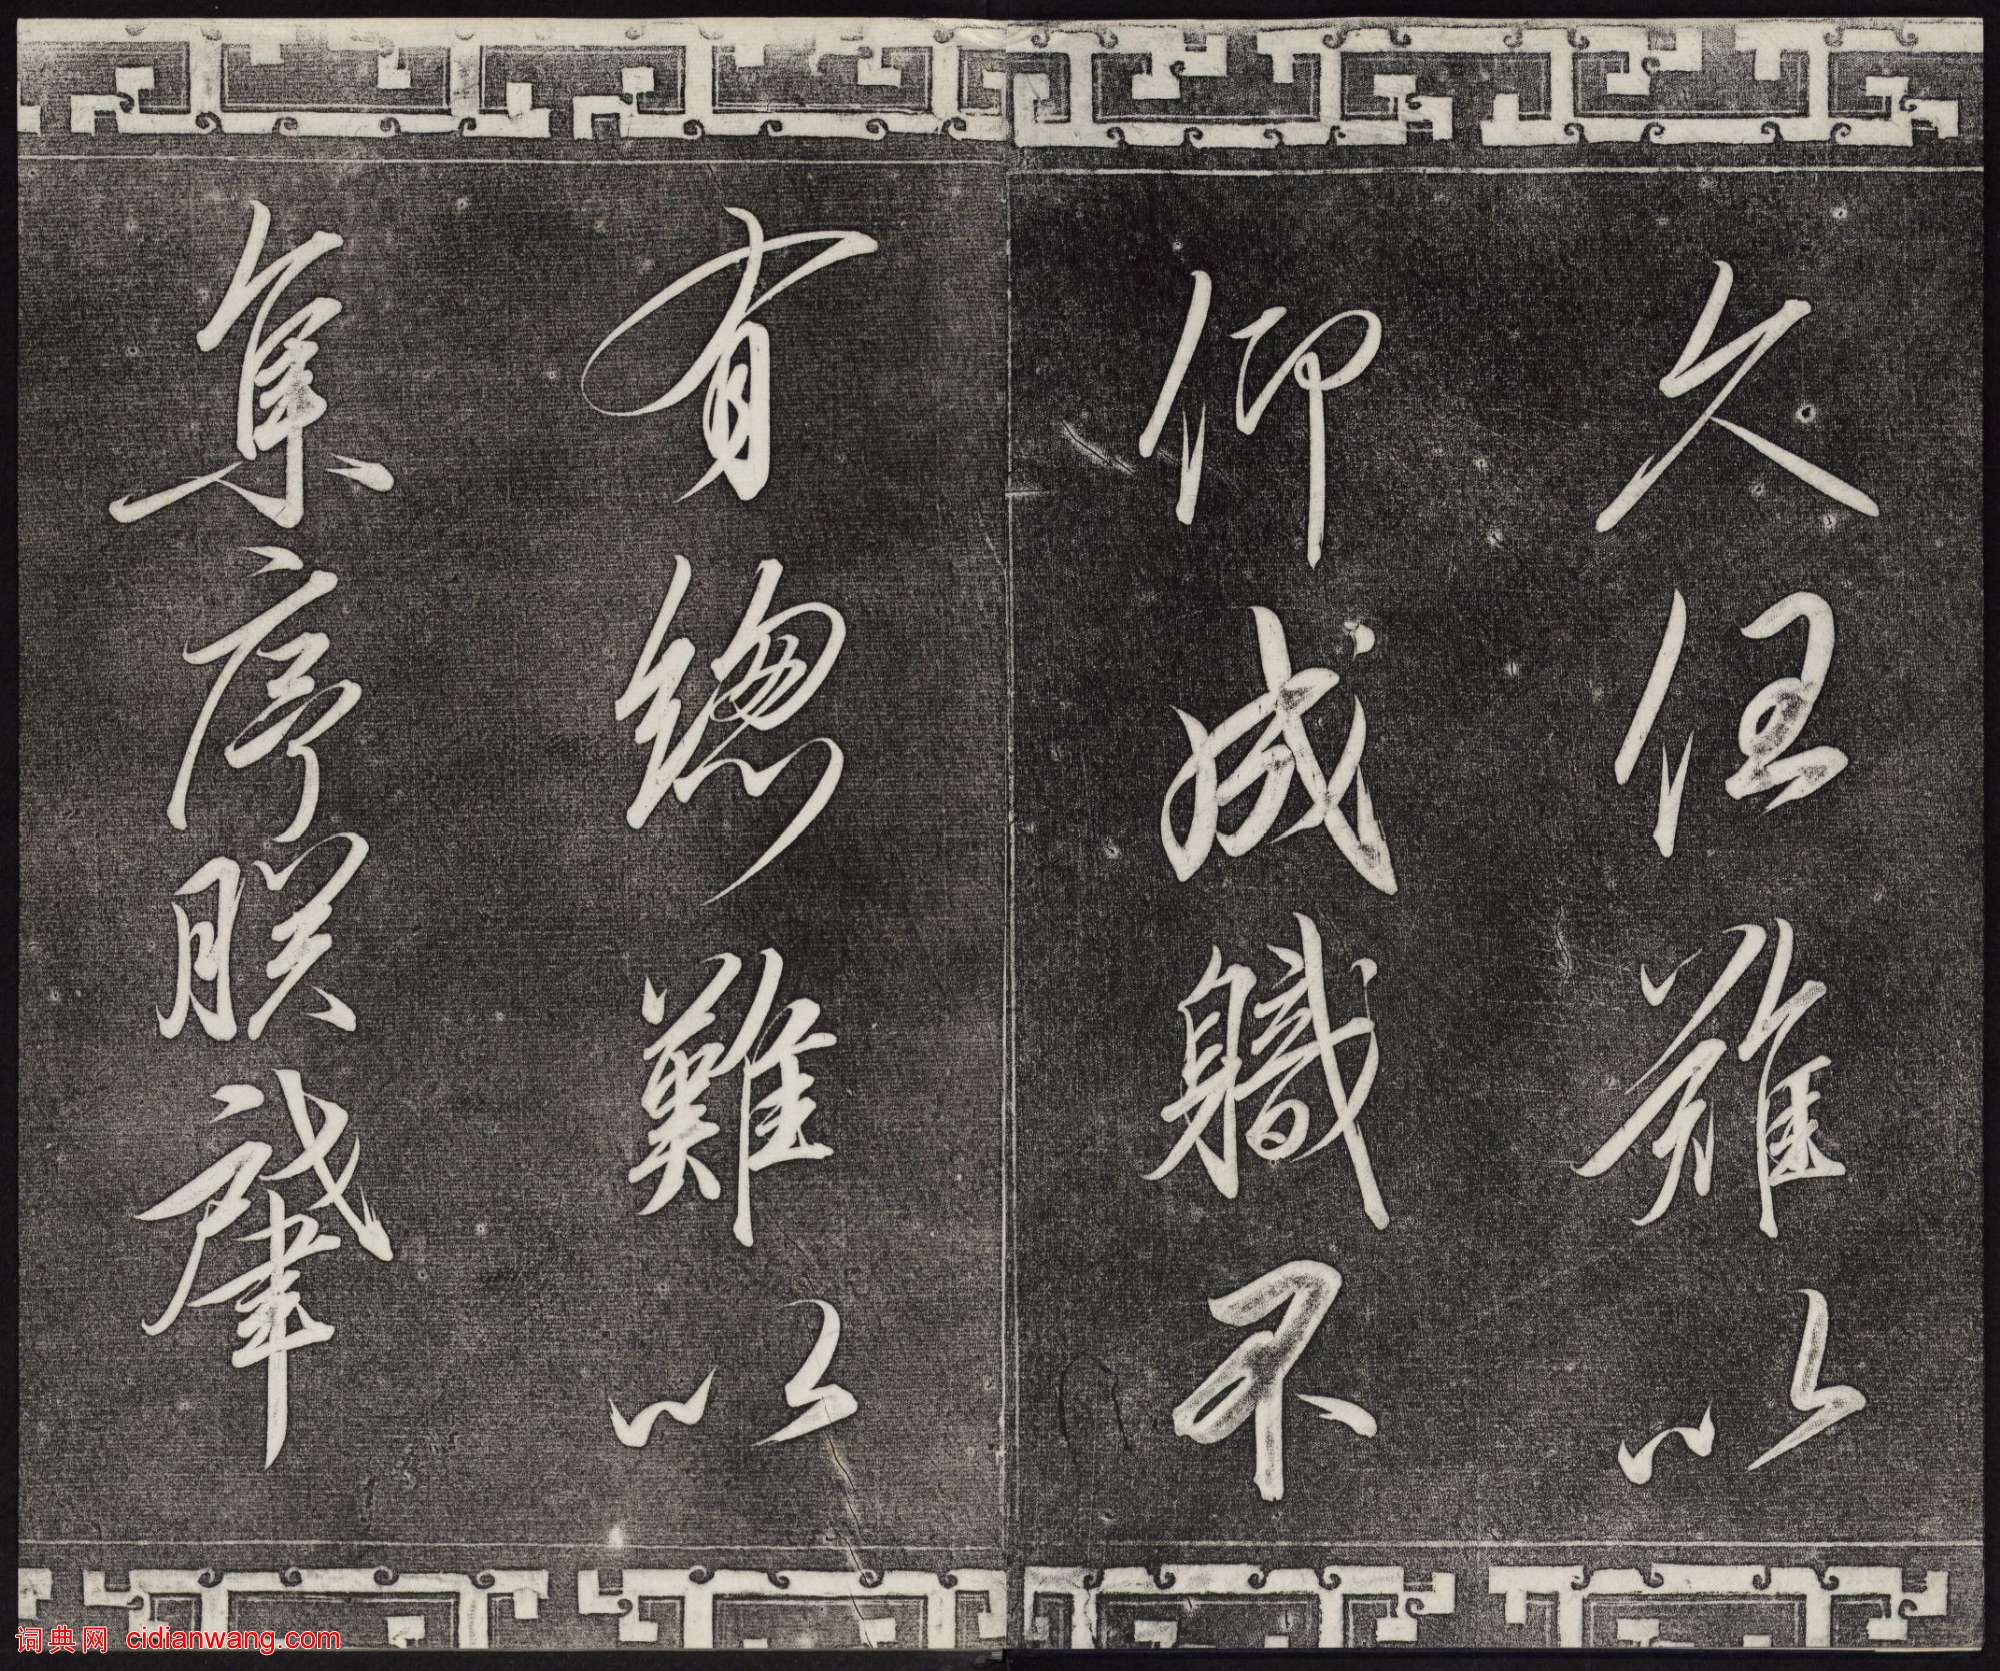 久任難以
仰成職不
有總難以
集序朕肇
词典网 cidianwang.com